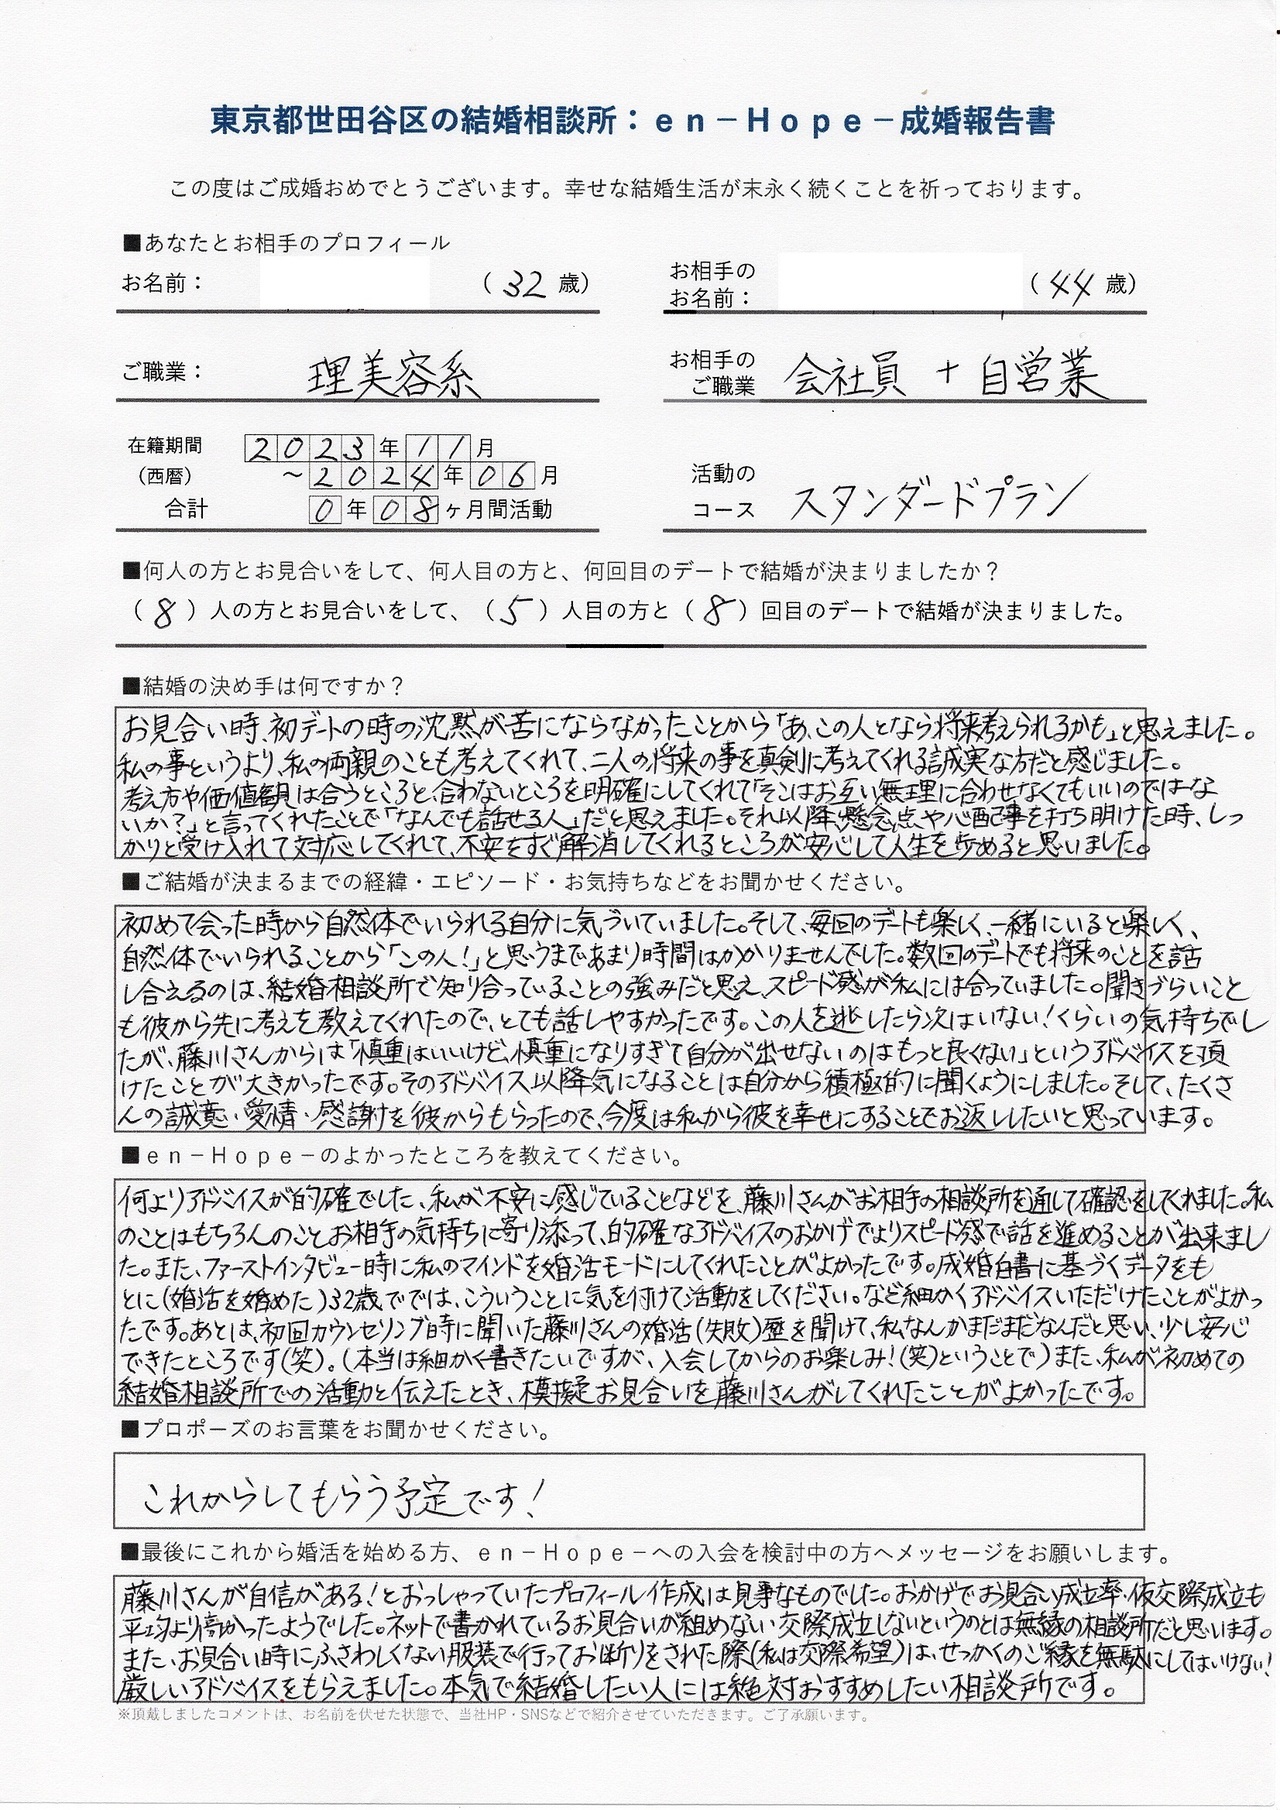 東京都世田谷区の結婚相談所：ｅｎ－Ｈｏｐｅ－成婚報告書
この度はご成婚おめでとうございます。幸せな結婚生活が末永く続くことを祈っております。
■あなたとお相手のプロフィール
お名前： （32 歳）
お相手の
お名前： （44 歳）
ご職業： 理美容系
お相手の
ご職業 会社員 + 自営業
在籍期間 2023年11月
（西暦） ～2024年06月
合計 0年08ヶ月間活動
活動の
コース スタンダードプラン
■何人の方とお見合いをして、何人目の方と、何回目のデートで結婚が決まりましたか？
（8）人の方とお見合いをして、（5）人目の方と（8）回目のデートで結婚が決まりました。
■結婚の決め手は何ですか？
お見合い時、初デートの時の沈黙が苦にならなかったことから「あ、この人となら将来考えられるかも」と思えました。
私の事というより、私の両親のことも考えてくれて、二人の将来の事を真剣に考えてくれる誠実な方だと感じました。
考え方や価値観は合うところと、合わないところを明確にしてくれて「そこはお互い無理に合わせなくてもいいのではな
いか？」と言ってくれたことで「なんでも話せる人」だと思えました。それ以降、懸念点や心配事を打ち明けた時、しっ
かりと受け入れて対応してくれて、不安をすぐ解消してくれるところが安心して人生を歩めると思いました。
■ご結婚が決まるまでの経緯・エピソード・お気持ちなどをお聞かせください。
初めて会った時から自然体でいられる自分に気づいていました。そして、毎回のデートも楽しく、一緒にいると楽しく、
自然体でいられることから「この人！」と思うまであまり時間はかかりませんでした。数回のデートでも将来のことを話
し合えるのは、結婚相談所で知り合っていることの強みだと思え、スピード感が私には合っていました。聞きづらいこと
も彼から先に考えを教えてくれたので、とても話しやすかったです。この人を逃したら次はいない！くらいの気持ちでし
たが、藤川さんからは「慎重はいいけど、慎重になりすぎて自分が出せないのはもっと良くない」というアドバイスを頂
けたことが大きかったです。そのアドバイス以降気になることは自分から積極的に聞くようにしました。そして、たくさ
んの誠意・愛情・感謝を彼からもらったので、今度は私から彼を幸せにすることでお返ししたいと思っています。
■ｅｎ－Ｈｏｐｅ－のよかったところを教えてください。
何よりアドバイスが的確でした、私が不安に感じていることなどを、藤川さんがお相手の相談所を通して確認をしてくれました。私
のことはもちろんのこと、お相手の気持ちに寄り添って、的確なアドバイスのおかげでよりスピード感で話を進めることが出来まし
た。また、ファーストインタビュー時に私のマインドを婚活モードにしてくれたことがよかったです。成婚白書に基づくデータをも
とに（婚活を始めた）32歳ででは、こういうことに気を付けて活動をしてください。など細かくアドバイスいただけたことがよかっ
たです。あとは、初回カウンセリング時に聞いた藤川さんの婚活（失敗）歴を聞けて、私なんかまだまだなんだと思い、少し安心
できたところです（笑）。（本当は細かく書きたいですが、入会してからのお楽しみ！（笑）ということで）また、私が初めての
結婚相談所での活動と伝えたとき、模擬お見合いを藤川さんがしてくれたことがよかったです。
■プロポーズのお言葉をお聞かせください。
これからしてもらう予定です！
■最後にこれから婚活を始める方、ｅｎ－Ｈｏｐｅ－への入会を検討中の方へメッセージをお願いします。
藤川さんが自信がある！とおっしゃっていたプロフィール作成は見事なものでした。おかげでお見合い成立率・仮交際成立も
平均より高かったようでした。ネットで書かれているお見合いが組めない・交際成立しないというのとは無縁の相談所だと思います。
また、お見合い時にふさわしくない服装で行ってお断りをされた際（私は交際希望）は、せっかくのご縁を無駄にしてはいけない！
厳しいアドバイスをもらえました。本気で結婚したい人には絶対おすすめしたい相談所です。
※頂戴しましたコメントは、お名前を伏せた状態で、当社HP・SNSなどで紹介させていただきます。ご了承願います。